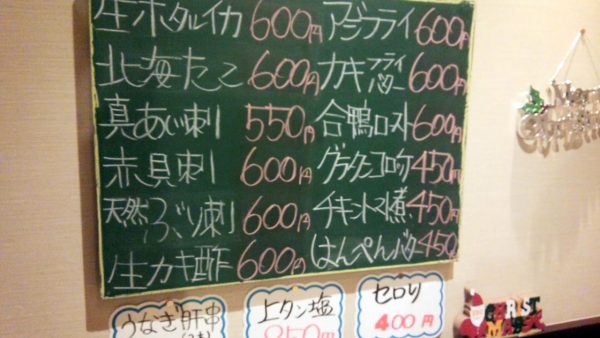 生ホタルイカ 600円
北海たこ 600円
真あじ刺 550円
赤貝刺 600円
天然ぶり刺 600円
生カキ酢 600円
アジフライ 600円
カキフライバター 600円
合鴨ロースト 600円
グラタンコロッケ 450円
チキントマト煮 450円
はんぺんバター 450
うなぎ肝串
上タン塩
850円
セロリ
400円
Merry
Christmas
CHRIST
MAS